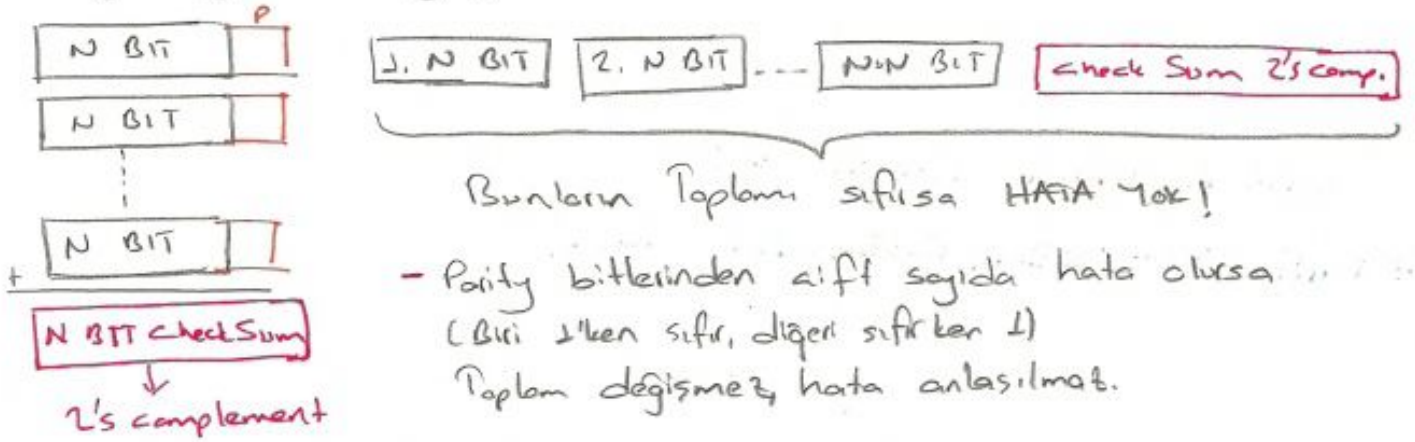 P
N BIT
N BIT
N BIT
+
N BIT CheckSum
2's complement
1. N BIT 2. N BIT .... N.N BIT Check Sum 2's comp.
Bunların Toplamı sıfırsa HATA Yok!
- Parity bitlerinden çift sayıda hata olursa ...
(Biri 1'ken sıfır, diğeri sıfırken 1)
Toplam değişmez, hata anlaşılmaz.